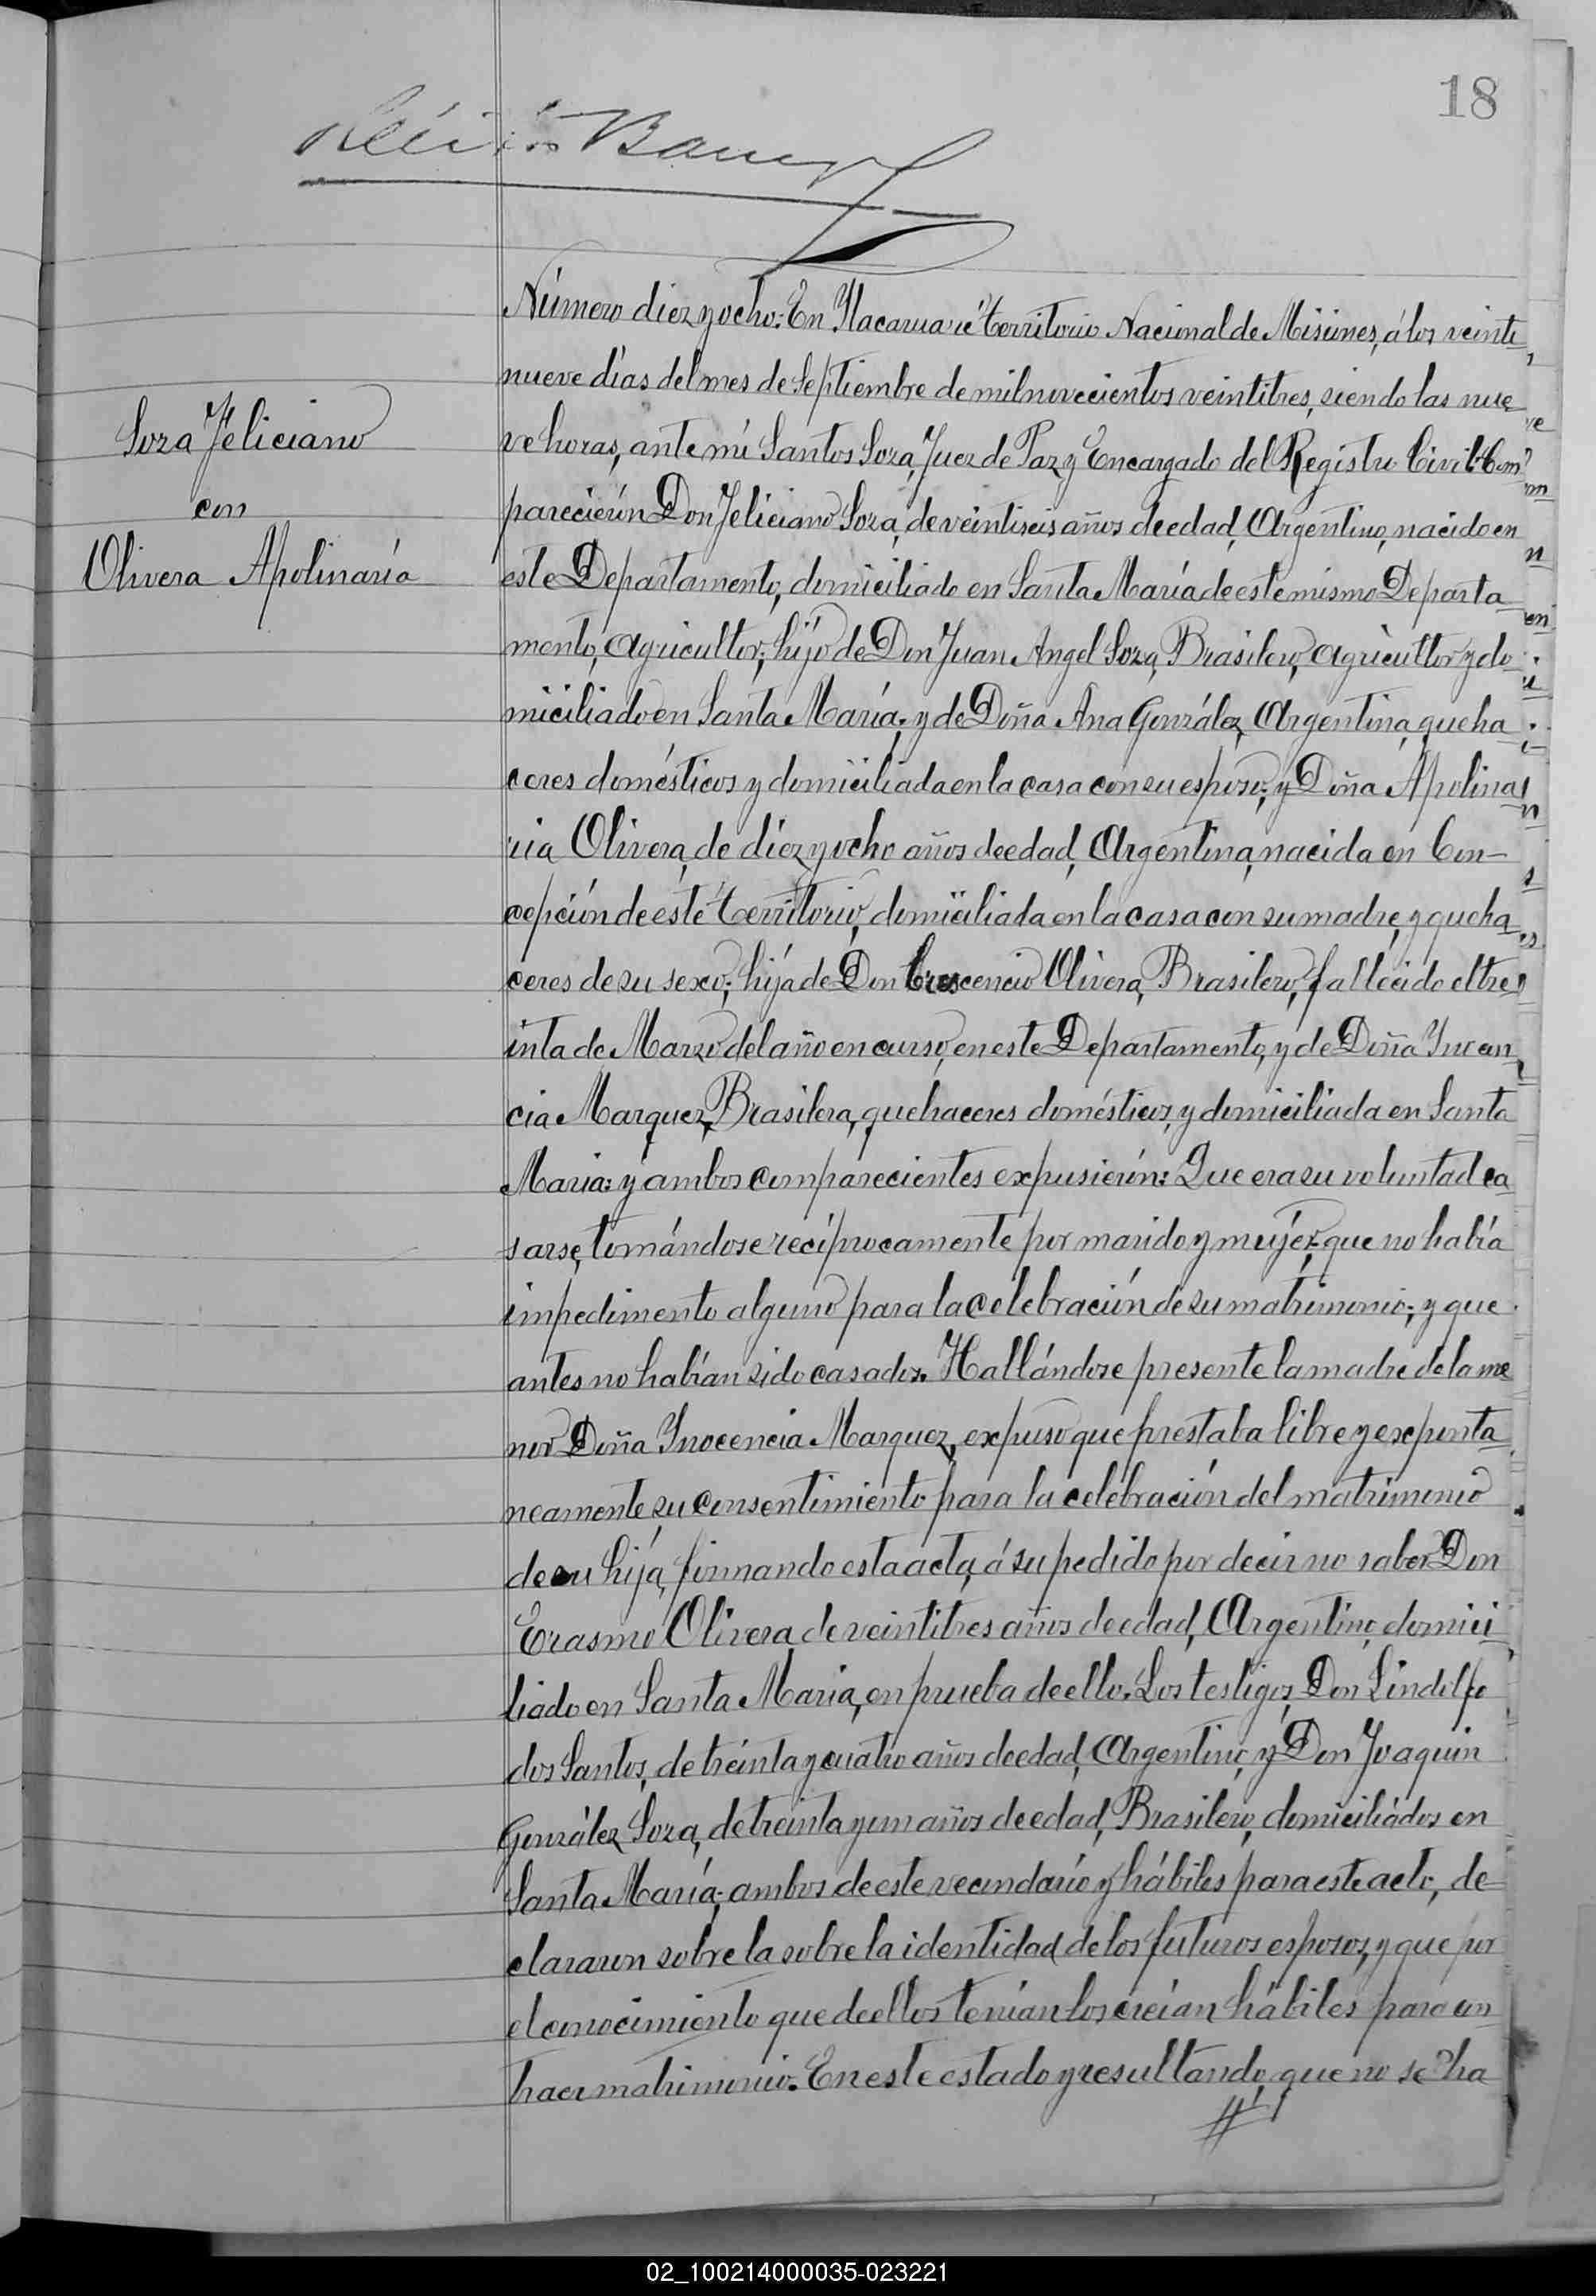 18
Número diez y ocho: En Itacaruaré territorio Nacional de Misiones, á los veinti
nueve días del mes de Septiembre de mil novecientos veintitres, siendo las nue
Soza Feliciano
con
Olivera Apolinaria
ve horas, ante mi Santos Soza, Juez de Paz y Encargado del Registro Civil: Com
pareción Don Feliciano Soza, de veintiseis años de edad, Argentino, nacido en
este Departamento, domiciliado en Santa María de este mismo Departa
mento, agricultor; hijo de Don Juan Angel Soza, Brasilero, agricultor y do
miciliado en Santa María; y de Doña Ana González, Argentina, queha
ceres domésticos y domiciliada en la casa con su esposo; y Doña Apolina
ria Olivera, de diez y ocho años de edad, Argentina, nacida en Con-
cepción de este territorio, domiciliada en la casa con su madre, y queha
ceres de su sexo; hija de Don Crescencio Olivera, Brasilero, fallecido el tre
inta de Marzo del año en curso, en este Departamento, y de Doña Inocen
cia Marquez, Brasilera, quehaceres domésticos, y domiciliada en Santa
Maria: y ambos comparecientes expusierón: Que era su voluntad ca
sarse, tomándose recíprocamente por marido y mujér; que no había
impedimento alguno para la celebración de su matrimonio; y que
antes no habían sido casados. Hallándose presente la madre de la me
nor Doña Inocencia Marquez, expuso que prestaba libre y exponta
neamente su consentimiento para la celebración del matrimonio
de su hija, firmando esta acta, á su pedido por decir no saber Don
Erasmo Olivera, de veintitres años de edad, Argentino, domici
liado en Santa Maria, en prueba de ello. Los testigos, Don Lindolfo
dos Santos, de treinta y cuatro años de edad, Argentino, y Don Joaquin
González Soza, de treinta y un años de edad, Brasilero, domiciliados en
Santa María; ambos de este vecindario y hábiles para este acto, de
clararon sobre la sobre la identidad de los futuros esposos, y que por
el conocimiento que de ellos tenían los creían hábiles para con
traer matrimonio. En este estado y resultando, que no se ha
02_100214000035-023221